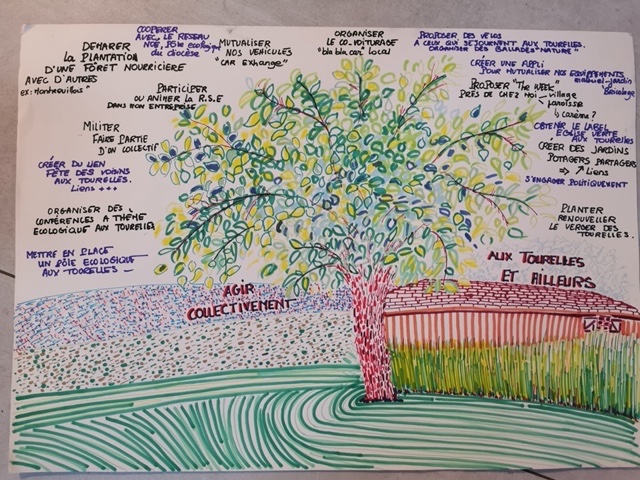 COOPERER
AVEC LE RESEAU
NOE, Pôle ecologique
du diocèse
DEMARER
la PLANTATION
D'UNE FÔRET NOURRICIERE
AVEC D'AUTRES
ex: Montreuillois
MUTUALISER
NOS VEHICULES
"CAR EXHANGE"
ORGANISER
LE CO-VOITURAGE
"bla bla car" local
PROPOSER DES VELOS
A CEUX QUI SEJOURNENT AUX TOURELLES.
ORGANISER DES BALLADES "NATURE"
CRÉER UNE APPLI
POUR MUTUALISER NOS EQUIPPEMENTS
matériel-jardin
Bricolage
PARTICIPER
OU ANIMER LA R.S.E
DANS MON ENTREPRISE
PROPOSER "The WEEK"
PRÈS DE CHEZ MOI - Village
Paroisse
carême?
MILITER
FAIRE PARTIE
D'UN COLLECTIF
OBTENIR LE LABEL
EGLISE VERTE
AUX TOURELLES
CREER DES JARDINS
POTAGERS PARTAGERS
⇒ ↗ Liens
CRÉER DU LIEN
FÊTE DES VOISINS
AUX TOURELLES.
Liens +++
S'ENGAGER POLITIQUEMENT
ORGANISER DES
CONFÉRENCES A THÈME
ECOLOGIQUE AUX TOURELLES
PLANTER
RENOUVELLER
LE VERGER DES
TOURELLES.
METTRE EN PLACE
UN PÔLE ECOLOGIQUE
AUX TOURELLES -
AUX TOURELLES
ET AILLEURS
AGIR
COLLECTIVEMENT